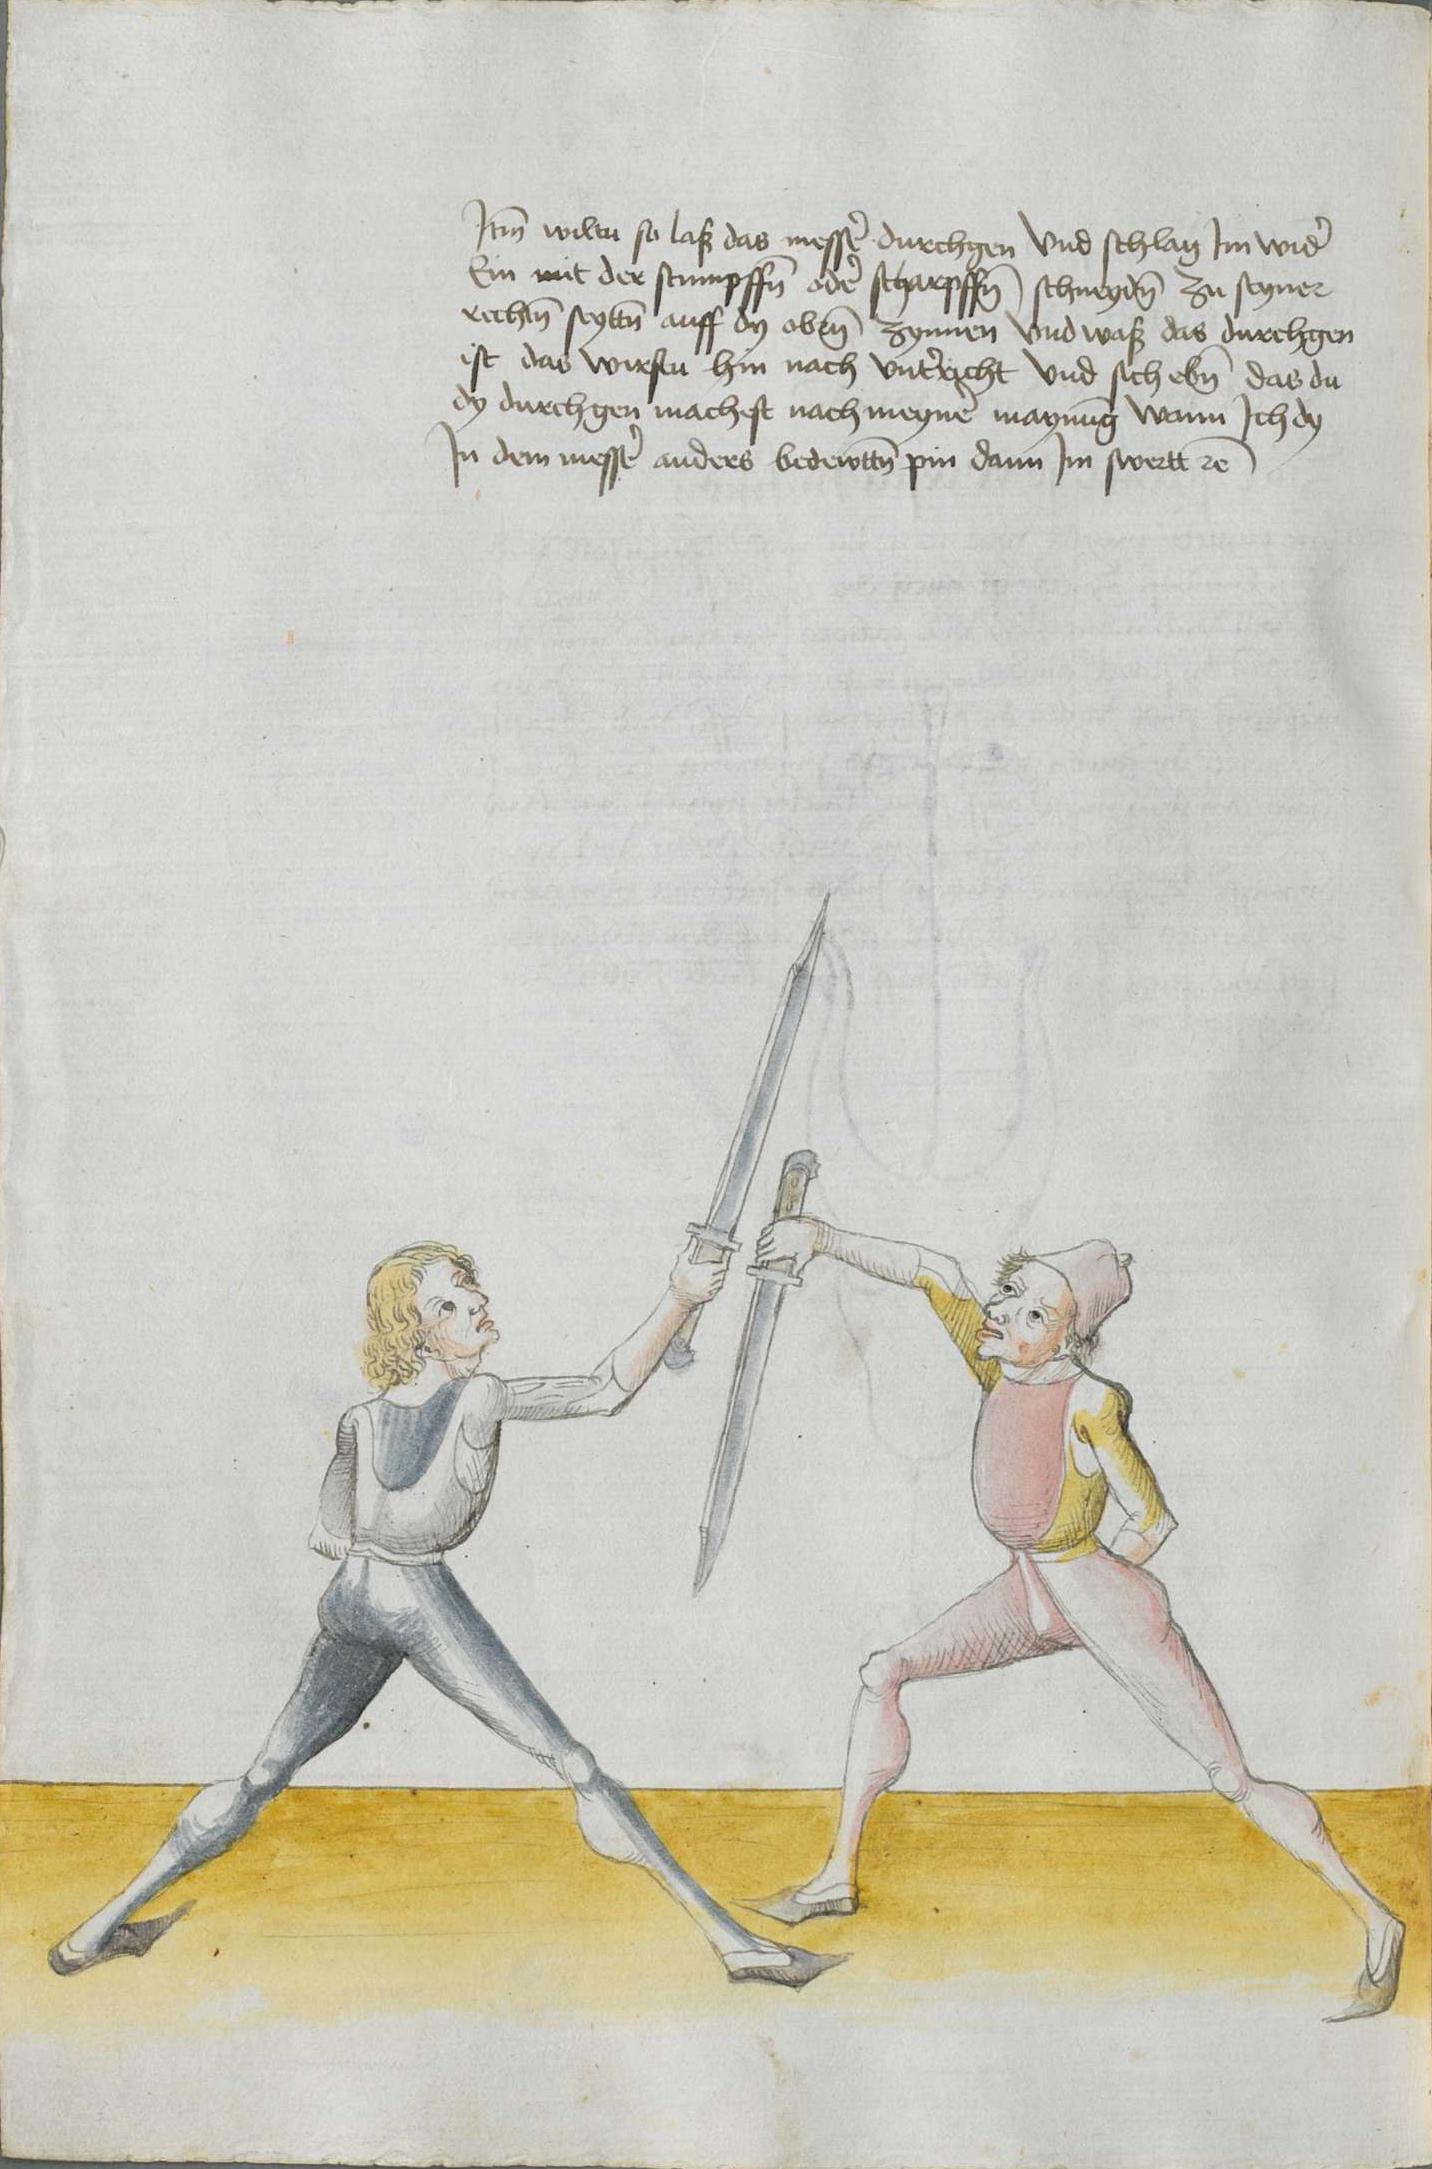 Itm̄ wiltu so laß das messer̄ durchgen Vnd schlag Im wid̄er
Ein mit der stumpffn̄ oder̄ scharpffn̄ schneydn̄ zu seyner
rechtn̄ seyttn̄ auff dy obrn̄ zynnen Vnd waß das durchgen
ist das wirstu hin nach vnterricht Vnd sich ebn̄ das du
dy durchgen machest nach meyner̄ maynūg Wann Ich dy
In dem messer̄ anders bedewttn̄ pin dann Im swertt rē